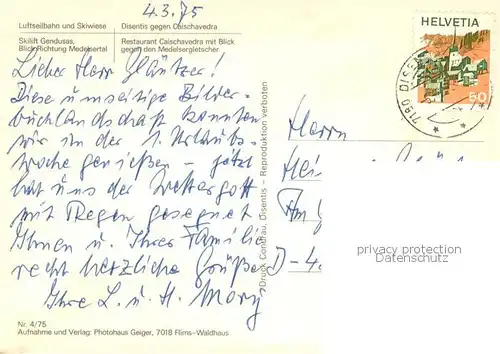 4.3.75
Luftseilbahn und Skiwiese
Disentis gegen Caischavedra
Skilift Gendusas,
Blick Richtung Medelsertal
Restaurant Caischavedra mit Blick
gegen den Medelsergletscher.
HELVETIA
50
7180 DISEN
Lieber Herr
Diese umseitige Bilder-
buchlandschaft konnten
wir in der 1. Urlaubs-
woche genießen – jetzt
hat uns der Wettergott
mit Regen gesegnet
Ihnen u. Ihrer Familie
recht herzliche Grüße
Ihre L. u. H. Mory
Druck Condrau, Disentis – Reproduktion verboten
Herrn
Am
D-4
privacy protection
Datenschutz
Nr. 4/75
Aufnahme und Verlag: Photohaus Geiger, 7018 Flims-Waldhaus